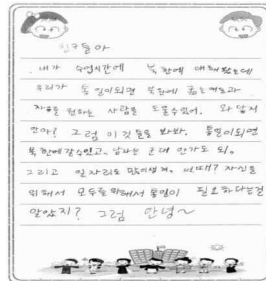 친구들아
내가 수업시간에 북한에 대해 봤는데
우리가 통일이되면 북한에 굶는사람과
자유를 원하는 사람을 도울수있어. 와 닿지
않아? 그럼 이것들을 봐봐. 통일이되면
북한에갈수있고, 남자는 군대 안가도 되.
그리고 일자리도 많이생겨. 어때? 자신을
위해서 모두를위해서 통일이 필요하다는걸
알았지? 그럼 안녕~